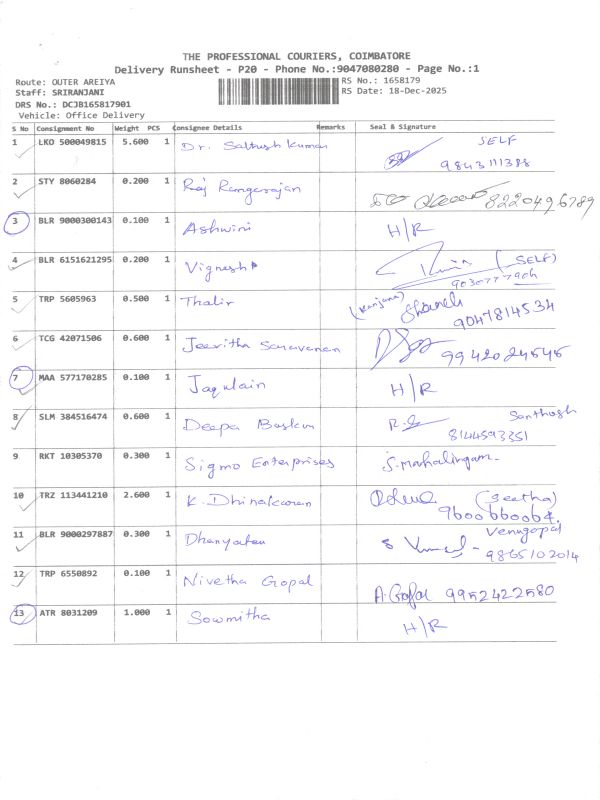 THE PROFESSIONAL COURIERS, COIMBATORE
Delivery Runsheet - P20 - Phone No.:9047080280 - Page No.:1
Route: OUTER AREIYA RS No.: 1658179
Staff: SRIRANJANI RS Date: 18-Dec-2025
DRS No.: DCJB165817901
Vehicle: Office Delivery
S No Consignment No Weight PCS Consignee Details Remarks Seal & Signature
1 LKO 500049815 5.600 1 Dr. Sathish Kumar SELF
9843111388
2 STY 8060284 0.200 1 Raj Rangarajan 8220496789
3 BLR 9000300143 0.100 1 Ashwini H/R
4 BLR 6151621295 0.200 1 Vignesh (SELF)
5 TRP 5605963 0.500 1 Thalir (Ranjana)
9047814534
6 TCG 42071506 0.600 1 Jeevitha Saravanan 9942024545
7 MAA 577170285 0.100 1 Jaqulain H/R
8 SLM 384516474 0.600 1 Deepa Baskar Santhosh
8144593351
9 RKT 10305370 0.300 1 Sigmo Enterprises S.mahalingam
10 TRZ 113441210 2.600 1 K. Dhinakaran (Geetha)
9600660064
11 BLR 9000297887 0.300 1 Venugopal
9865102014
12 TRP 6550892 0.100 1 Nivetha Gopal A.Gopal 9952422580
13 ATR 8031209 1.000 1 Sowmitha H/R